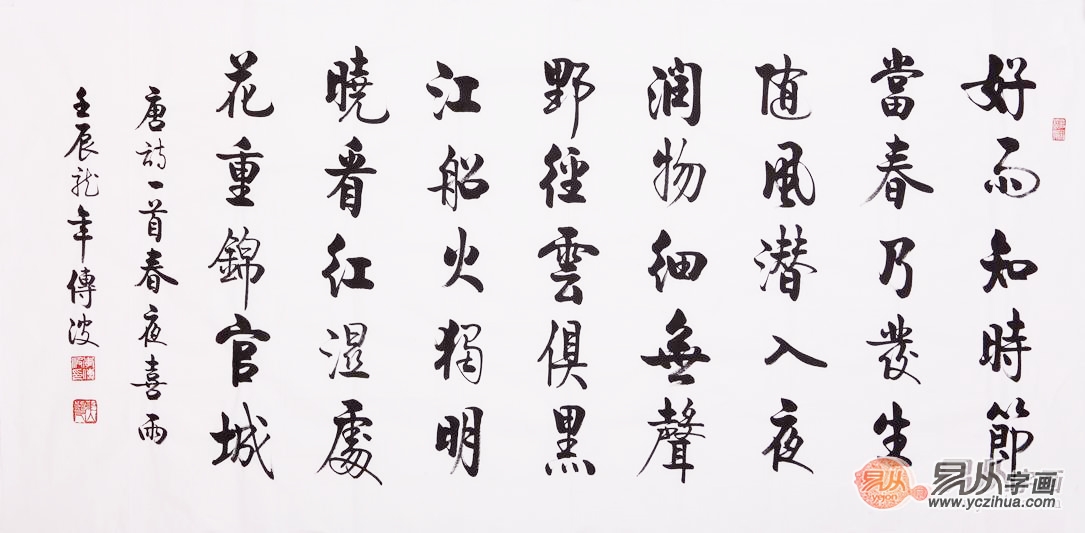 好雨知時節
當春乃發生
随風潜入夜
潤物細無聲
野徑雲俱黑
江船火獨明
曉看紅濕處
花重錦官城
唐詩一首春夜喜雨
壬辰龙年傳波
易从
yczijon
易从字画
www.yczihua.com